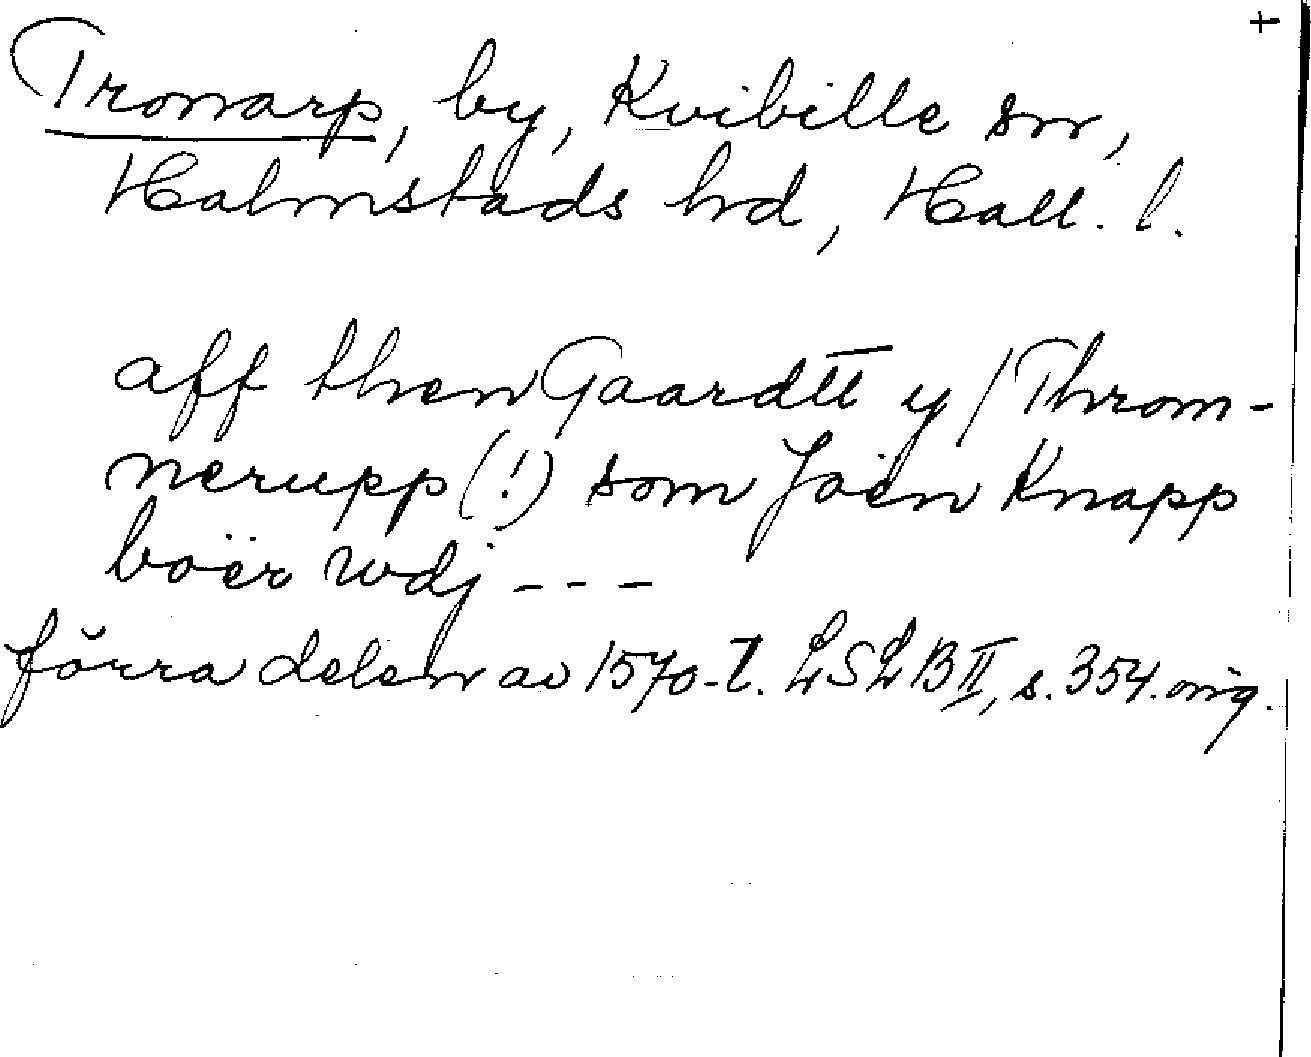 +
Tronarp, by, Kvibille sn,
Halmstads hd, Hall. l.
aff then Gaardtt y / Throm-
nerupp (!) som Joen Knapp
boër wdj ---
förra delen av 1570-t. LSLB II, s. 354. orig.